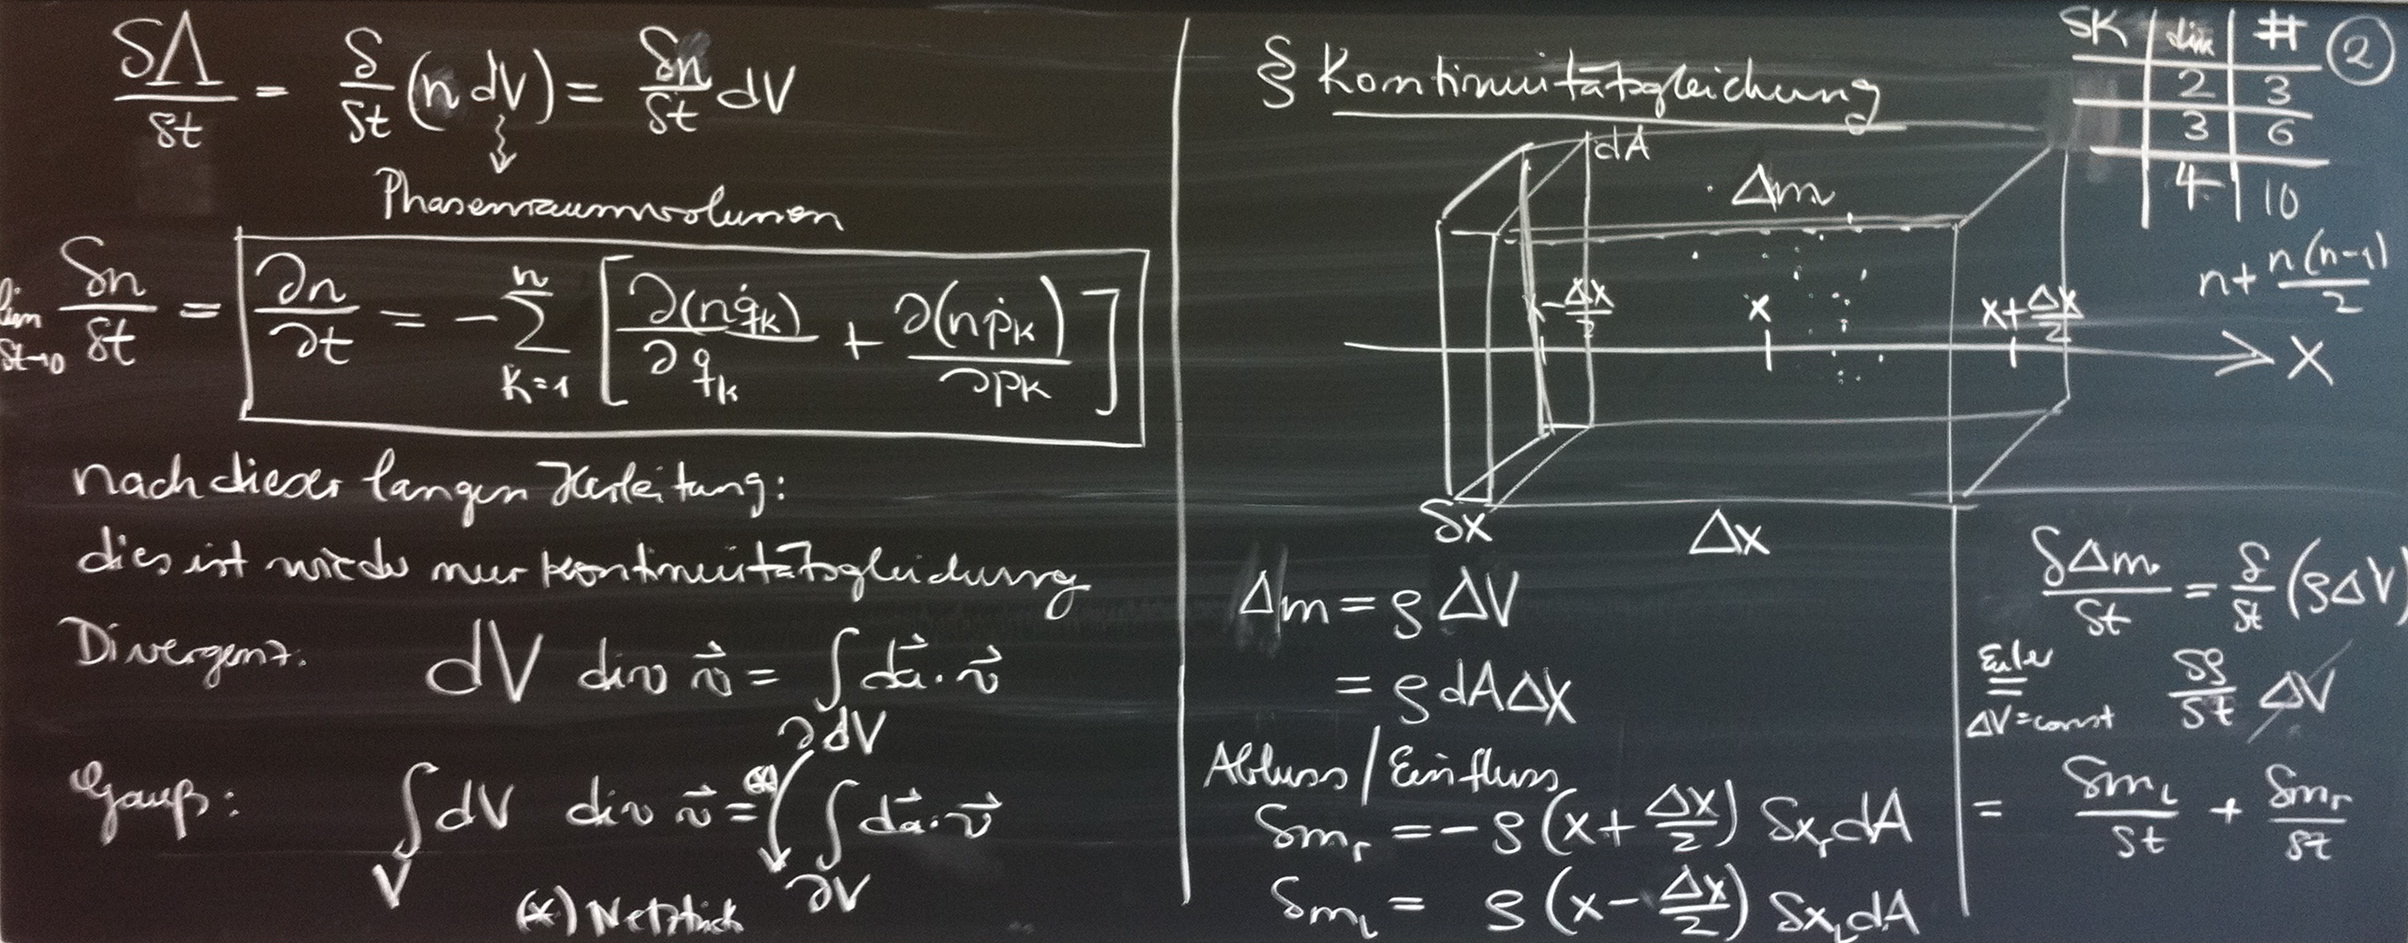 δΛ/δt = δ/δt (n dV) = δn/δt dV
Phasenraumvolumen
lim δt→0 δn/δt = ∂n/∂t = -∑_{k=1}^{n} [∂(n q̇_k)/∂q_k + ∂(n ṗ_k)/∂p_k]
nach dieser langen Herleitung:
dies ist wieder nur Kontinuitätsgleichung
Divergenz: dV div v⃗ = ∫_{∂dV} da⃗ · v⃗
Gauß: ∫_V dV div v⃗ =^{(*)} ∫_{∂V} da⃗ · v⃗
(*) Netztrick
§ Kontinuitätsgleichung
SK | dim | #
2 | 3
3 | 6
4 | 10
②
n + n(n-1)/2
dA
Δm
x - Δx/2
x
x + Δx/2
X
δx
Δx
Δm = ρ ΔV
= ρ dA Δx
Abfluss / Einfluss
δm_r = -ρ (x + Δx/2) δx_r dA
δm_L = ρ (x - Δx/2) δx_L dA
δΔm/δt = δ/δt (ρΔV)
Euler = ΔV = const δρ/δt ΔV
= δm_L/δt + δm_r/δt